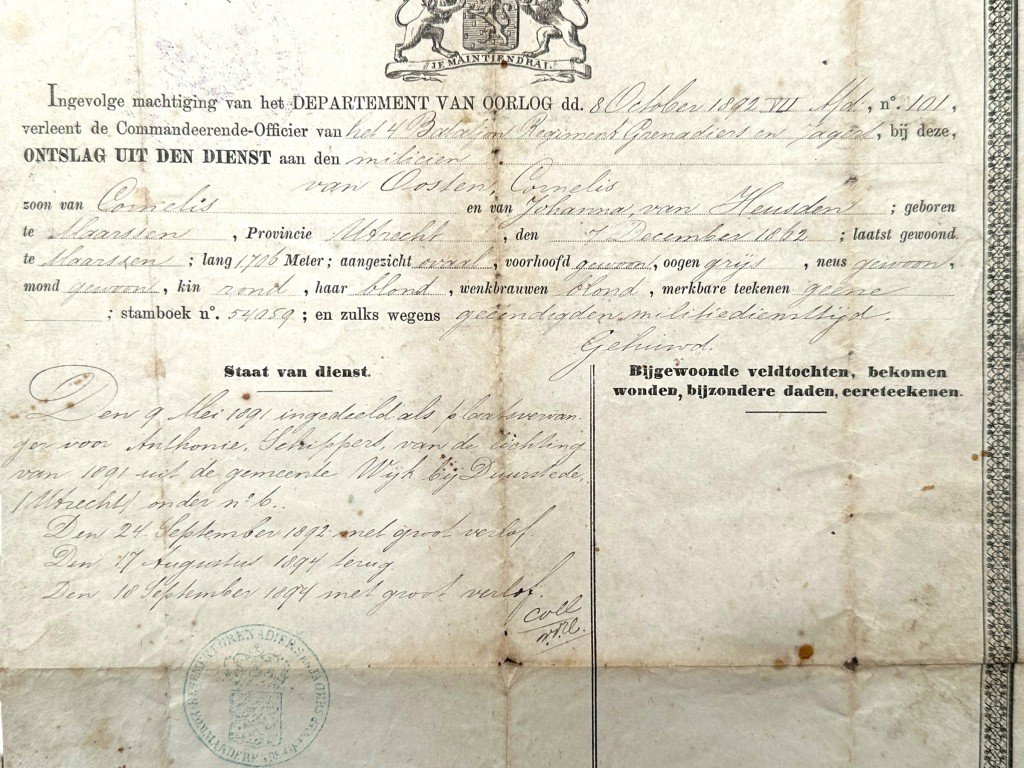 JE MAINTIENDRAI.
Ingevolge machtiging van het DEPARTEMENT VAN OORLOG dd. 8 October 1892 VII Afd:, nº. 101,
verleent de Commandeerende-Officier van het 4e Bataljon Regiment Grenadiers en Jagers, bij deze,
ONTSLAG UIT DEN DIENST aan den milicien
van Oosten, Cornelis
zoon van Cornelis en van Johanna van Heusden ; geboren
te Maarssen , Provincie Utrecht , den 7 December 1862 ; laatst gewoond
te Maarssen ; lang 1,706 Meter; aangezicht ovaal, voorhoofd gewoon, oogen grijs , neus gewoon,
mond gewoon, kin rond, haar blond, wenkbrauwen blond, merkbare teekenen geene
; stamboek nº. 54059; en zulks wegens geëindigden militiediensttijd.
Gehuwd.
Staat van dienst.
Den 9 Mei 1891 ingedeeld als plaatsvervan
ger voor Anthonie Schippers, van de lichting
van 1891 uit de gemeente Wijk bij Duurstede,
(Utrecht) onder nº 6.
Den 24 September 1892 met groot verlof.
Den 17 Augustus 1894 terug
Den 18 September 1894 met groot verlof.
Coll
Bijgewoonde veldtochten, bekomen
wonden, bijzondere daden, eereteekenen.
GRENADIERS EN JAGERS